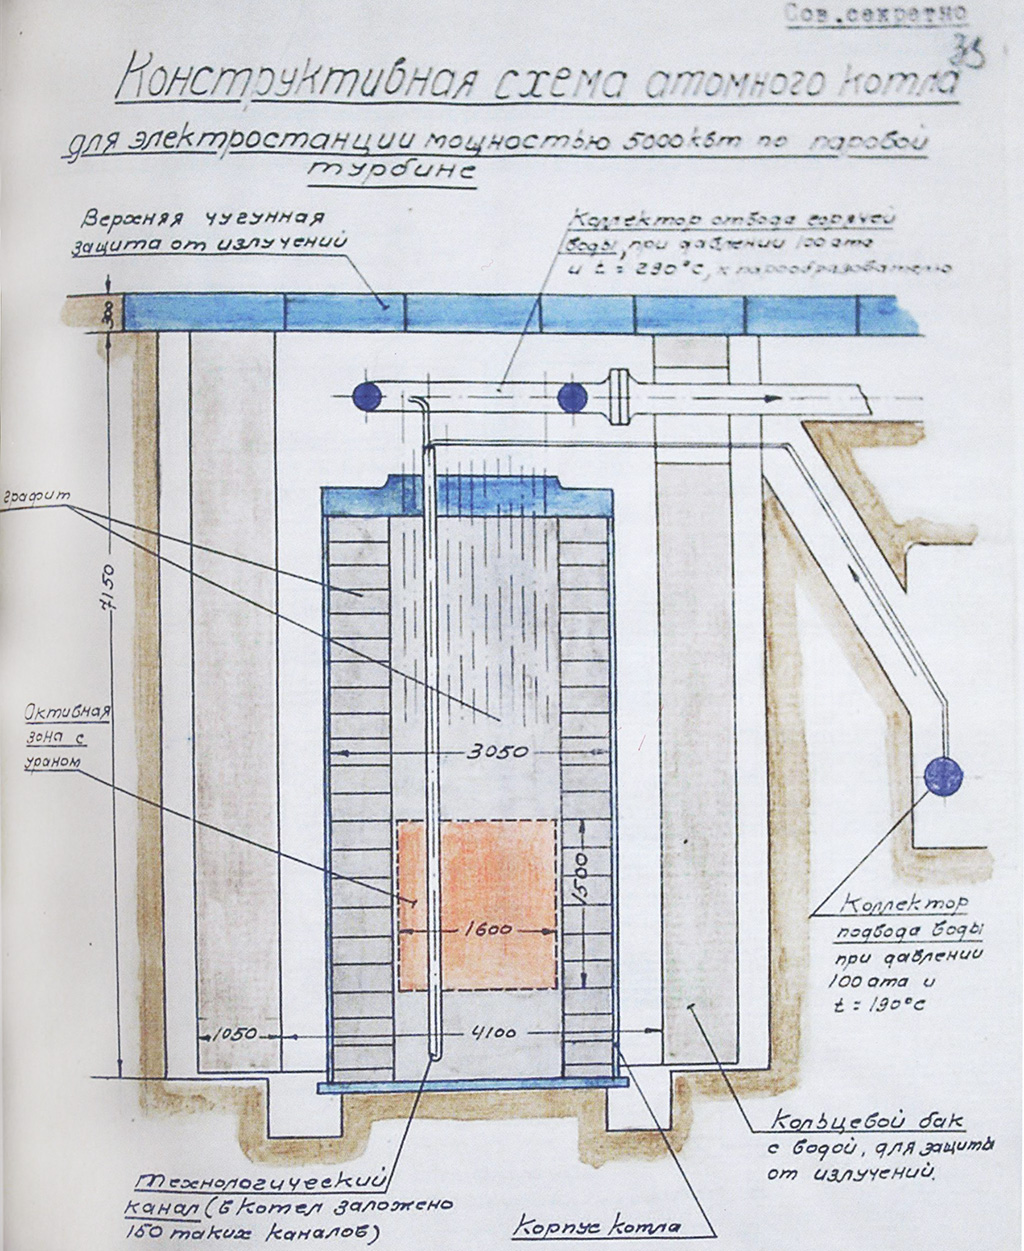 Сов.секретно
33
Конструктивная схема атомного котла
для электростанции мощностью 5000квт по паровой
турбине
Верхняя чугунная
защита от излучений
Коллектор отвода горячей
воды, при давлении 100 ата
и t = 290°с, к парообразователю
300
графит
7150
Активная
зона с
ураном
3050
1500
1600
1050
4100
Коллектор
подвода воды
при давлении
100 ата и
t = 190°с
Кольцевой бак
с водой, для защиты
от излучений.
Технологический
канал (в котел заложено
150 таких каналов)
Корпус котла